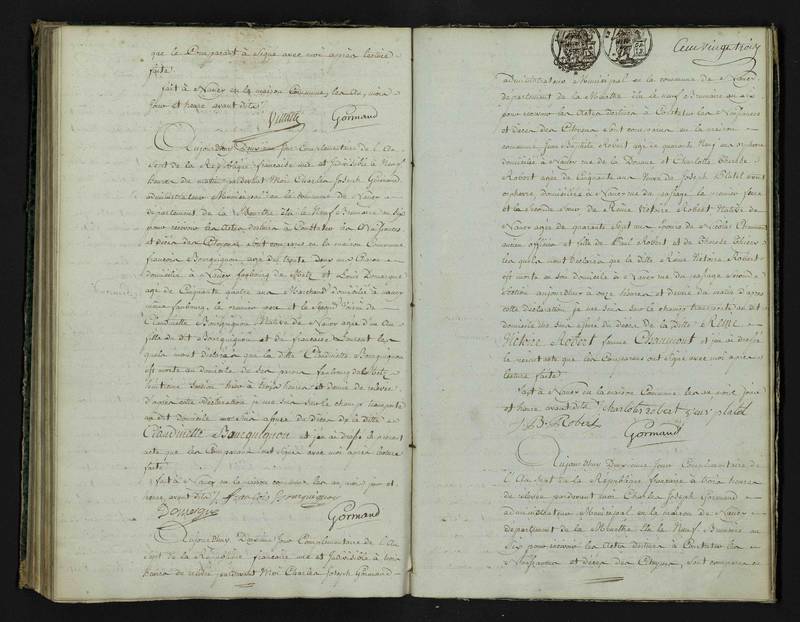 que le Comparant à Signé avec moi après lecture
faite
fait à Nancy en la maison Commune, les an, mois
jour et heure avant dits
Gormand
Aujourd'huy Deux jour Complementaire de l'An
Sept de la Republique francaise une et indivisible à Neuf
heures du matin pardevant Moi Charles Joseph Gormand
administrateur Municipal en la commune de Nancy
département de la Meurthe élu le Neuf Brumaire an six
pour recevoir les actes destinés à Constater les Naissances
et décès des Citoyens Sont comparus en la maison Commune
françois Bourguignon agé de trente Deux ans
domicilié à Nancy faubourg de Metz et Louis Domergue
agé de Cinquante quatre ans Marchand domicilié à Nancy
même faubourg, le premier père et le Second Voisin de
Claudinette Bourguignon Native de Nancy agée d'un an
fille du dit Bourguignon et de françoise Laurent les
quels mont déclaré que la ditte Claudinette Bourguignon
est morte au domicile de Ses père faubourg de Metz
hier à trois heures et demie de relevée
d'après cette déclaration je me suis sur le champ transporté
au dit domicile me suis assuré du décès de la ditte
Claudinette Bourguignon et j'ai dressé le present
acte que les Comparans ont Signé avec moi après lecture
faite
fait à Nancy en la maison commune les an mois jour et
heure avant dits francois Bourguignon
Domergue
Gormand
Aujourd'huy Deuxième jour Complementaire de l'An
Sept de la Republique francaise une et Indivisible à trois
heures de relevée pardevant Moi Charles Joseph Gormand
Cent vingt trois
administrateur Municipal en la commune de Nancy
département de la Meurthe élu le neuf Brumaire an six
pour recevoir les actes destinés à Constater les Naissances
et décès des Citoyens sont comparus en la maison
commune Jean Baptiste Robert agé de quarante Neuf ans orphevre
domicilié à Nancy rue de la Douane et Charlotte
Robert agée de Cinquante ans Veuve de Joseph Platel
orphevre, domiciliée à Nancy rue du passage le premier frere
et la Seconde Sœur de Reine Victoire Robert Native de
Nancy agée de quarante Sept ans Epouse de Nicolas Chaumont
ancien officier et fille de Paul Robert et de Therese
les quels mont déclaré que la ditte Reine Victoire Robert
est morte en Son domicile à Nancy rue du passage Seconde
Section aujourd'huy à onze heures et demie du matin d'après
cette déclaration je me suis sur le champ transporté au dit
domicile me suis assuré du décès de la ditte Reine
Victoire Robert femme Chaumont et j'ai dressé
le present acte que les Comparans ont Signé avec moi après
lecture faite
fait à Nancy en la maison Commune les an mois jour
et heure avant dits Charlotte robert veuve platel
J. B. Robert
Gormand
Aujourd'huy Deux jour Complementaire de
l'An Sept de la Republique francaise à trois heures
de relevée pardevant moi Charles Joseph Gormand
administrateur Municipal en la maison de Nancy
département de la Meurthe élu le Neuf Brumaire an
Six pour recevoir les actes destinés à Constater les
Naissances et décès des Citoyens, sont comparus en